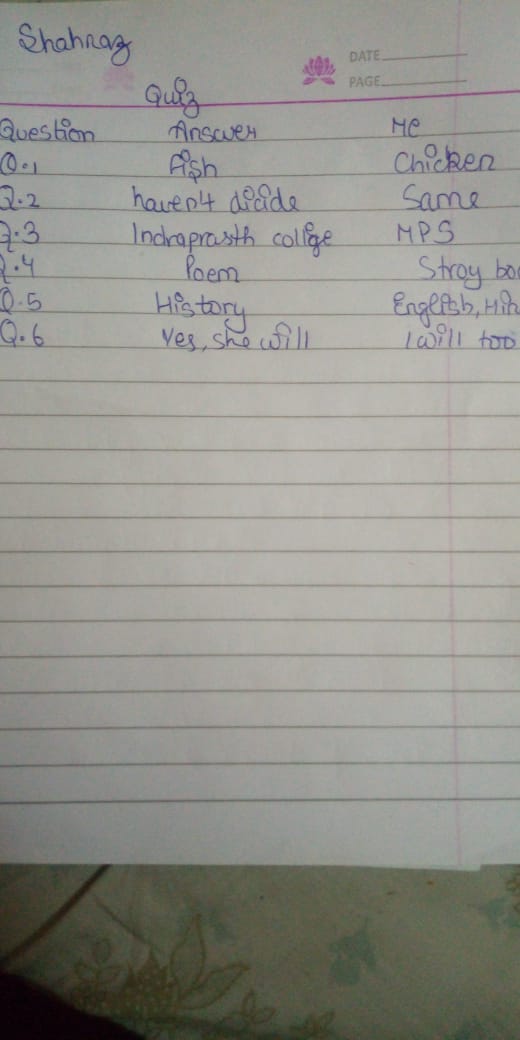 Shahnaz
DATE
PAGE
Quiz
Question Answer Me
Q.1 Fish Chicken
Q.2 haven't dicide Same
Q.3 Indraprasth collge MPS
Q.4 Poem Stray bo
Q.5 History English, Hin
Q.6 Yes, she will I will too